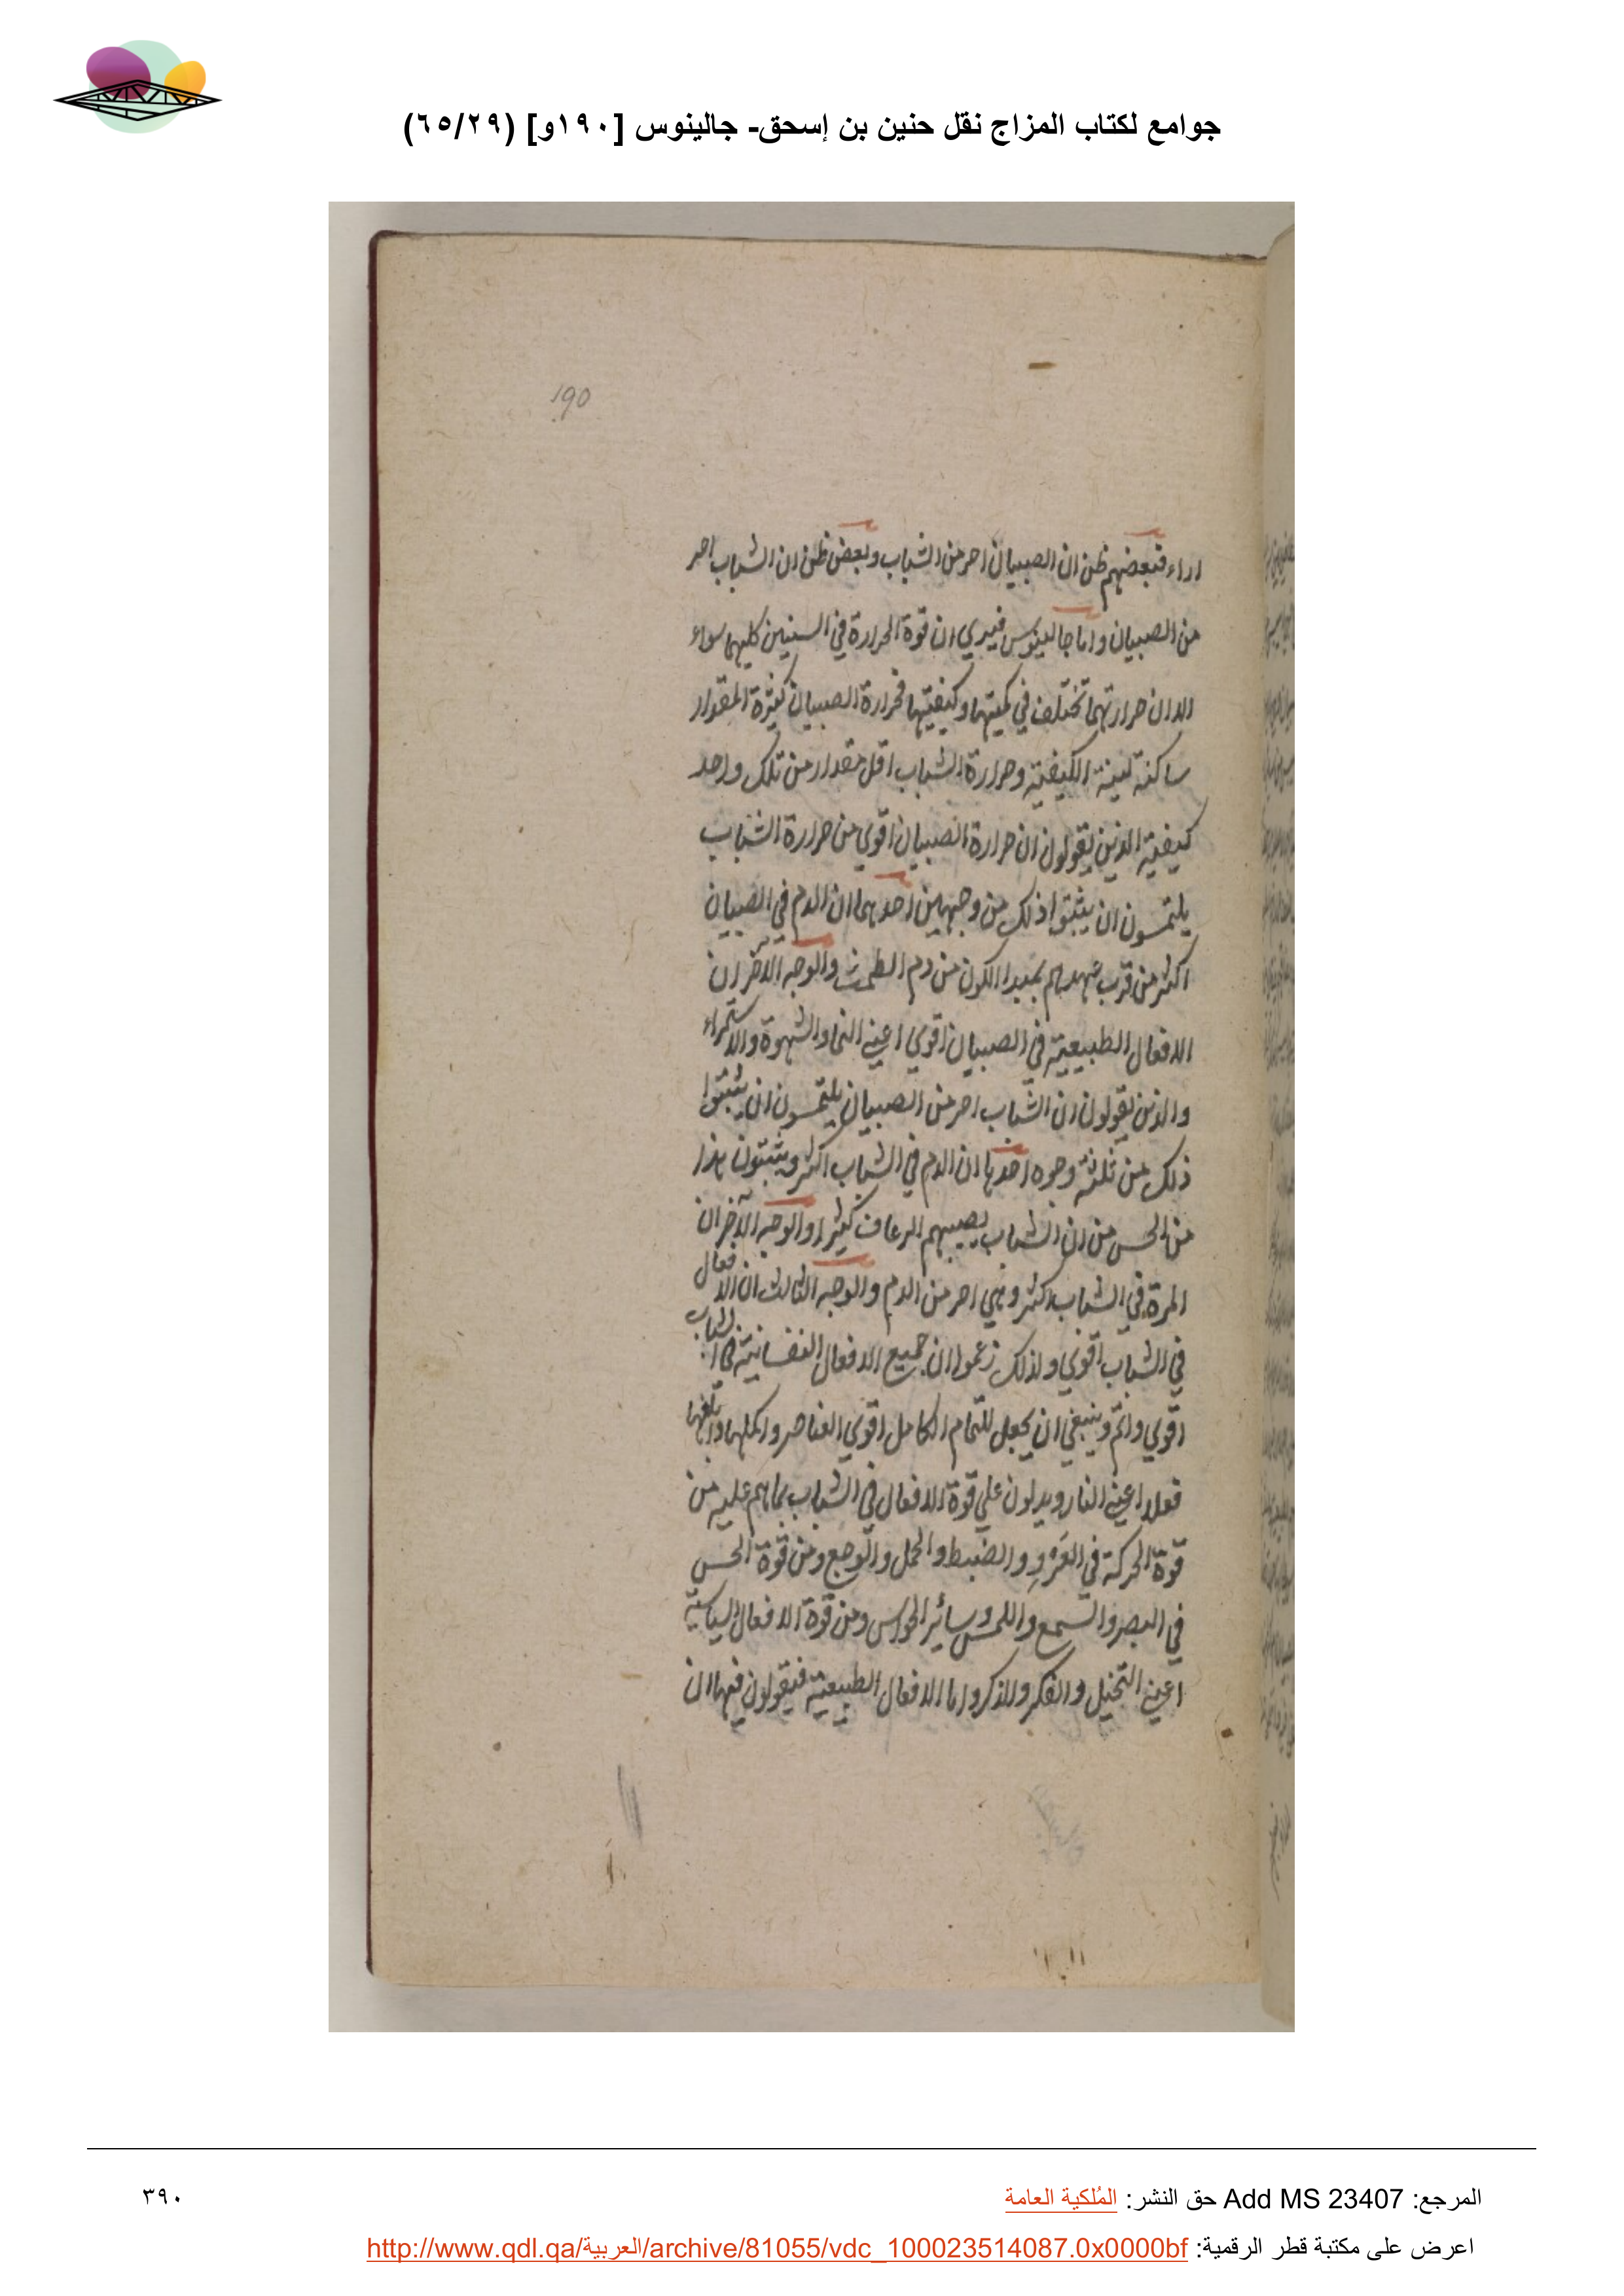 جوامع لكتاب المزاج نقل حنين بن إسحق- جالينوس [١٩٠و] (٦٥/٢٩)
190
اراء فبعضهم ظن ان الصبيان احر من الشباب وبعض ظن ان الشباب احر
من الصبيان واما جالينوس فيري ان قوة الحرارة في السنين كليهما سواء
الا ان حرارتهما تختلف في كميتها وكيفيتها فحرارة الصبيان كثيرة المقدار
ساكنة لينة الكيفية وحرارة الشباب اقل مقدار من تلك واحد
كيفية الذين يقولون ان حرارة الصبيان اقوي من حرارة الشباب
يلتمسون ان يثبتوا ذلك من وجهين احدهما ان الدم في الصبيان
اكثر من قرب عهدهم بمبدا الكون من دم الطمث والوجه الآخر ان
الافعال الطبيعية في الصبيان اقوي اعني النما والشهوة والاستمراء
والذين يقولون ان الشباب احر من الصبيان يلتمسون ان يثبتوا
ذلك من ثلثة وجوه احدها ان الدم في الشباب اكثر ويثبتون هذا
من الحس من ان الشباب يصيبهم الرعاف كثيرا والوجه الآخر ان
المرة في الشباب اكثر وهي احر من الدم والوجه الثالث ان الافعال
في الشباب اقوي ولذلك زعموا ان جميع الافعال النفسانية في الشباب
اقوي واتم وينبغي ان يجعل للتمام الكامل اقوي العناصر واكملها وابلغها
فعلا اعني النار ويدلون علي قوة الافعال في الشباب بما هم عليه من
قوة الحركة في العَدْوِ والضبط والحمل و ومن قوة الحس
في البصر والسمع واللمس وسائر الحواس ومن قوة الافعال السياسية
اعني التخيل والفكر والذكر واما الافعال الطبيعية فيقولون فيها ان
المرجع: Add MS 23407 حق النشر: المُلكية العامة
٣٩٠
اعرض على مكتبة قطر الرقمية: http://www.qdl.qa/العربية/archive/81055/vdc_100023514087.0x0000bf